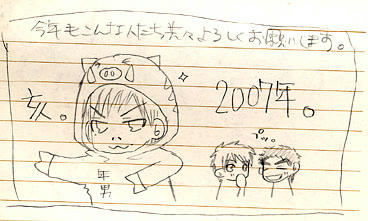 今年もこんな人たち共々よろしくお願いします。
2007年。
亥。
プッ。
年男